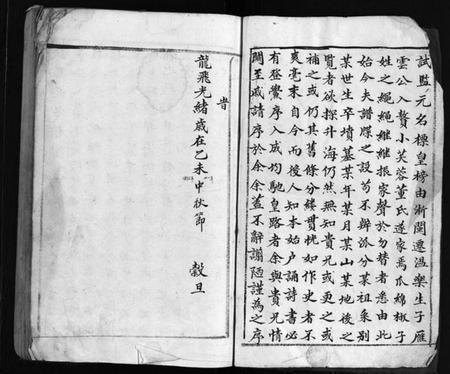 試監元名標皇榜由浙閩遷溫樂生子雁
雲公入贅小芙蓉董氏遂家焉瓜綿椒子
姓之繩繩繼繼振家聲於勿替者悉由此
始今夫譜牒之設苟不辨派分某祖某別
某世生卒墳墓某年某月某山某地後之
覽者欲探升海仍然無知貴兄或更之或
補之或仍其舊條分縷貫恍如作史者不
爽毫末自今而後人知本始戶誦詩書必
有登黌序入成均馳皇路者余與貴兄情
關至戚請序於余余蓋不辭謭陋謹為之序
旹
龍飛光緒歲在乙未中秋節 穀旦